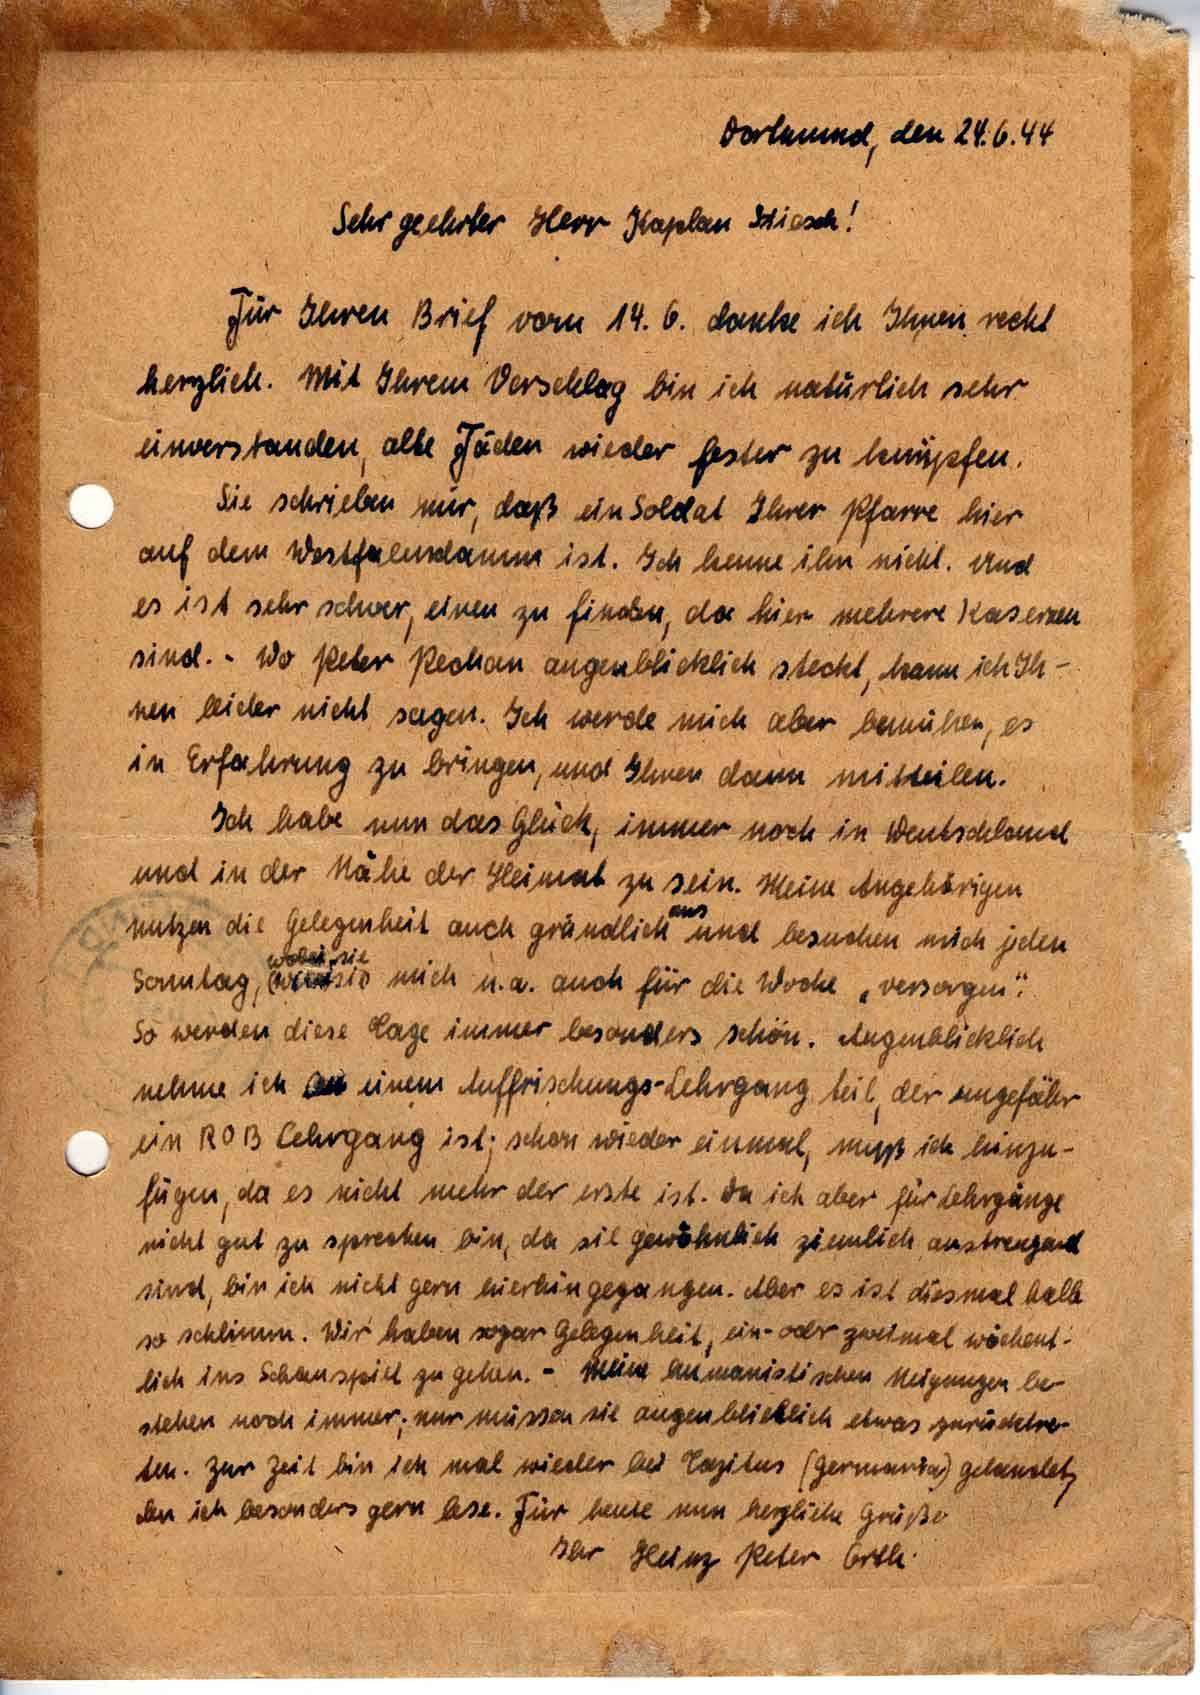 Dortmund, den 24.6.44
Sehr geehrter Herr Kaplan
Für Ihren Brief vom 14. 6. danke ich Ihnen recht
herzlich. Mit Ihrem Vorschlag bin ich natürlich sehr
einverstanden, alte Fäden wieder fester zu knüpfen.
Sie schrieben mir, daß ein Soldat Ihrer Pfarre hier
auf dem Westfalendamm ist. Ich kenne ihn nicht. Und
es ist sehr schwer, einen zu finden, da hier mehrere Kasernen
sind. - Wo Peter Pechan augenblicklich steckt, kann ich Ih-
nen leider nicht sagen. Ich werde mich aber bemühen, es
in Erfahrung zu bringen, und Ihnen dann mitteilen.
Ich habe nun das Glück, immer noch in Deutschland
und in der Nähe der Heimat zu sein. Meine Angehörigen
nutzen die Gelegenheit auch gründlich aus und besuchen mich jeden
Sonntag, wobei sie mich u.a. auch für die Woche „versorgen".
So werden diese Tage immer besonders schön. Augenblicklich
nehme ich an einem Auffrischungs-Lehrgang teil, der ungefähr
ein ROB Lehrgang ist; schon wieder einmal, muß ich hinzu-
fügen, da es nicht mehr der erste ist. Da ich aber für Lehrgänge
nicht gut zu sprechen bin, da sie gewöhnlich ziemlich anstrengend
sind, bin ich nicht gern hierhin gegangen. Aber es ist diesmal halb
so schlimm. Wir haben sogar Gelegenheit, ein- oder zweimal wöchent-
lich ins Schauspiel zu gehen. - Meine humanistischen Neigungen be-
stehen noch immer; nur müssen sie augenblicklich etwas zurücktre-
ten. Zur Zeit bin ich mal wieder bei Tazitus (Germania) gelandet,
den ich besonders gern lese. Für heute nun herzliche Grüße
Ihr Heinz Peter Orth.